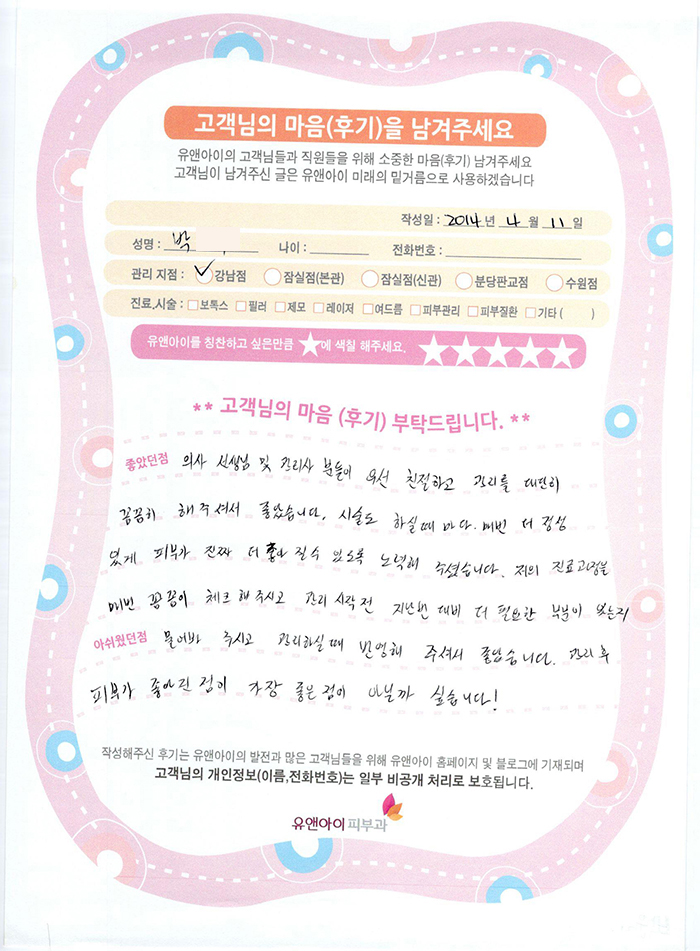 고객님의 마음(후기)을 남겨주세요
유앤아이의 고객님들과 직원들을 위해 소중한 마음(후기) 남겨주세요
고객님이 남겨주신 글은 유앤아이 미래의 밑거름으로 사용하겠습니다
작성일 : 2014 년 4 월 11 일
성명 : 박 나이 : 전화번호 :
관리 지점 : 강남점 잠실점(본관) 잠실점(신관) 분당판교점 수원점
진료,시술 : 보톡스 필러 제모 레이저 여드름 피부관리 피부질환 기타 ( )
유앤아이를 칭찬하고 싶은만큼 ★에 색칠 해주세요. ★★★★★
** 고객님의 마음 (후기) 부탁드립니다. **
좋았던점 의사 선생님 및 관리사 분들이 우선 친절하고 관리를 대단히
꼼꼼히 해주셔서 좋았습니다. 시술도 하실때 마다 매번 더 정성
있게 피부가 진짜 더 좋아 질수 있도록 노력해 주셨습니다. 저의 진료과정을
매번 꼼꼼이 체크해주시고 관리 시작전 지난번 대비 더 필요한 부분이 있는지
아쉬웠던점 물어봐 주시고 관리하실때 반영해 주셔서 좋았습니다. 관리 후
피부가 좋아진 점이 가장 좋은 점이 아닐까 싶습니다!
작성해주신 후기는 유앤아이의 발전과 많은 고객님들을 위해 유앤아이 홈페이지 및 블로그에 기재되며
고객님의 개인정보(이름,전화번호)는 일부 비공개 처리로 보호됩니다.
유앤아이 피부과